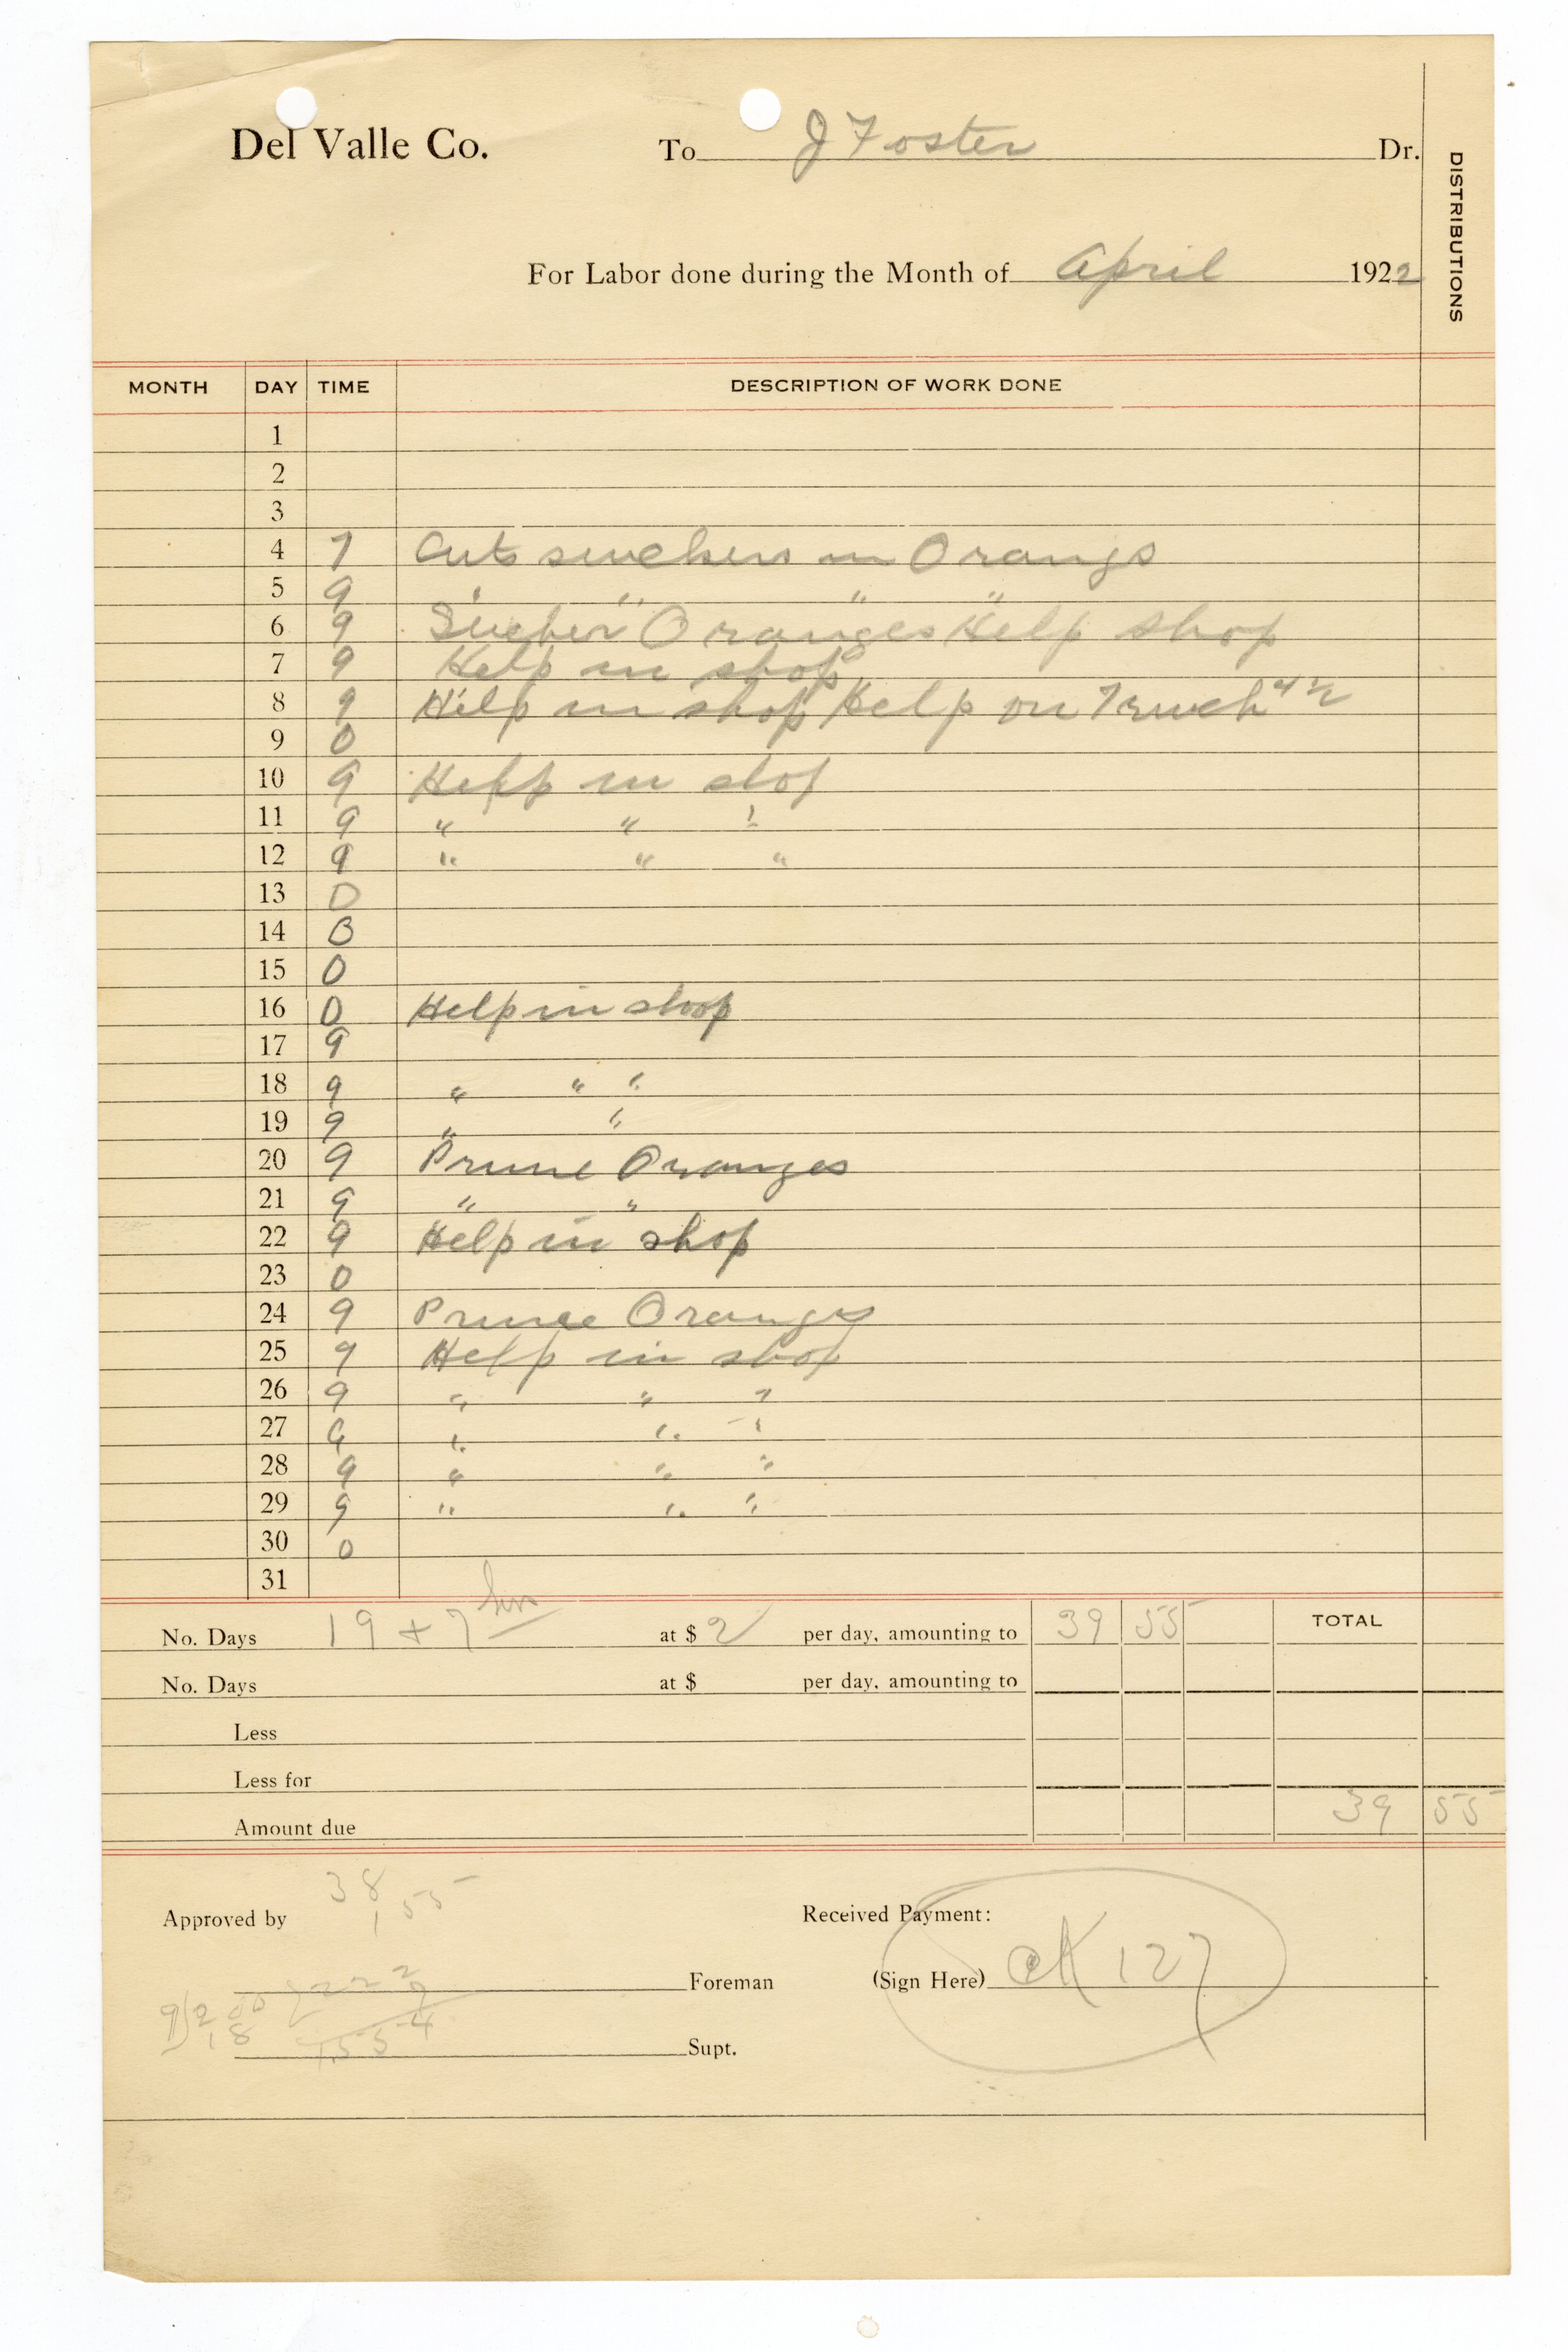 Del Valle Co. To J Foster Dr.
DISTRIBUTIONS
For Labor done during the Month of April 1922
MONTH DAY TIME DESCRIPTION OF WORK DONE
1
2
3
4 7 Cuts suckers in Orangs
5 9 " " " "
6 9 Sucker Oranges Help shop
7 9 Help in shop
8 9 Help in shop Help on Truck 4 1/2
9 0
10 9 Help in shop
11 9 " " "
12 9 " " "
13 0
14 0
15 0
16 0 Help in shop
17 9
18 9 " " "
19 9 " "
20 9 Prune Oranges
21 9 " "
22 9 Help in shop
23 0
24 9 Prune Oranges
25 9 Help in shop
26 9 " " "
27 9 " " "
28 9 " " "
29 9 " " "
30 0
31
No. Days 19 + 7 hrs at $ 2 per day, amounting to 39 55 TOTAL
No. Days at $ per day, amounting to
Less
Less for
Amount due 39 55
38
1 55
Approved by Received Payment:
Foreman (Sign Here) ck 127
9)2 00 222
18 7
1554
Supt.